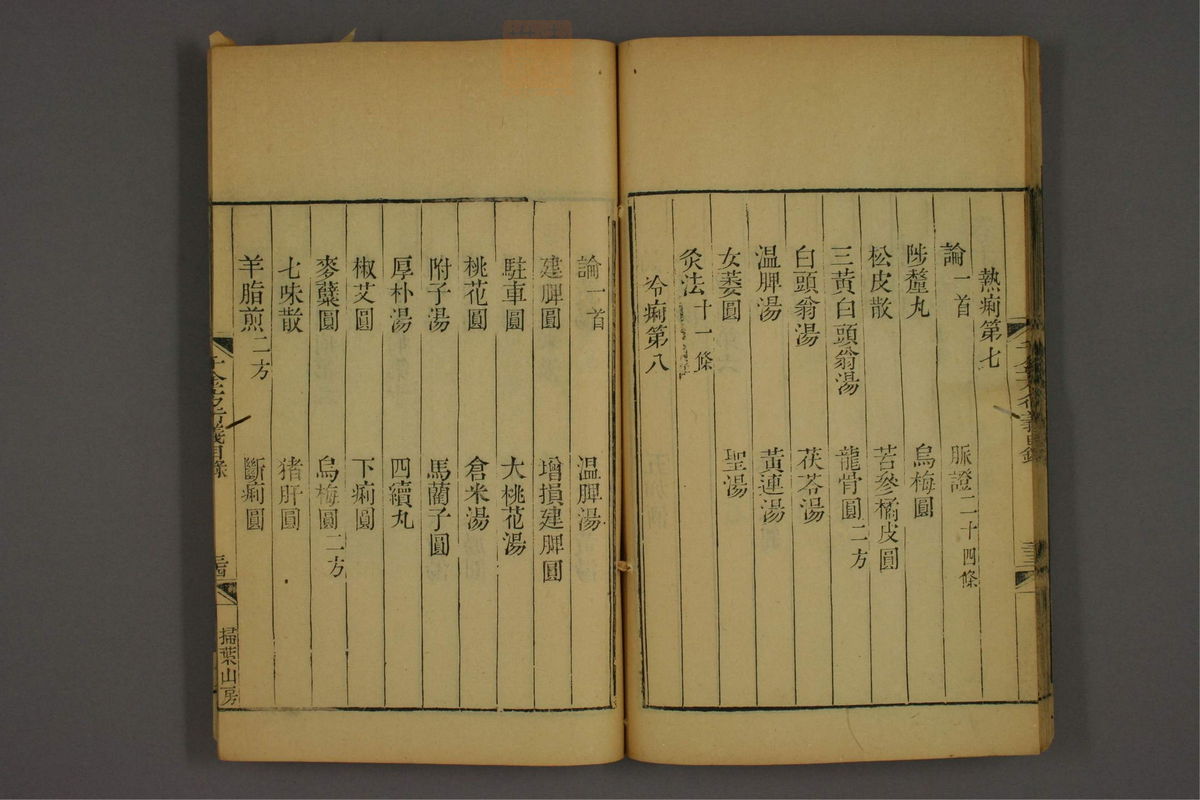 熱痢第七
論一首 脈證二十四條
陟釐丸 烏梅圓
松皮散 苦參橘皮圓
三黃白頭翁湯 龍骨圓二方
白頭翁湯 茯苓湯
温脾湯 黃連湯
女萎圓 聖湯
灸法十一條
冷痢第八
論一首 温脾湯
建脾圓 增損建脾圓
駐車圓 大桃花湯
桃花圓 倉米湯
附子湯 馬藺子圓
厚朴湯 四續丸
椒艾圓 下痢圓
麥蘖圓 烏梅圓二方
七味散 猪肝圓
羊脂煎二方 斷痢圓
千金方衍義目錄 三四
掃葉山房